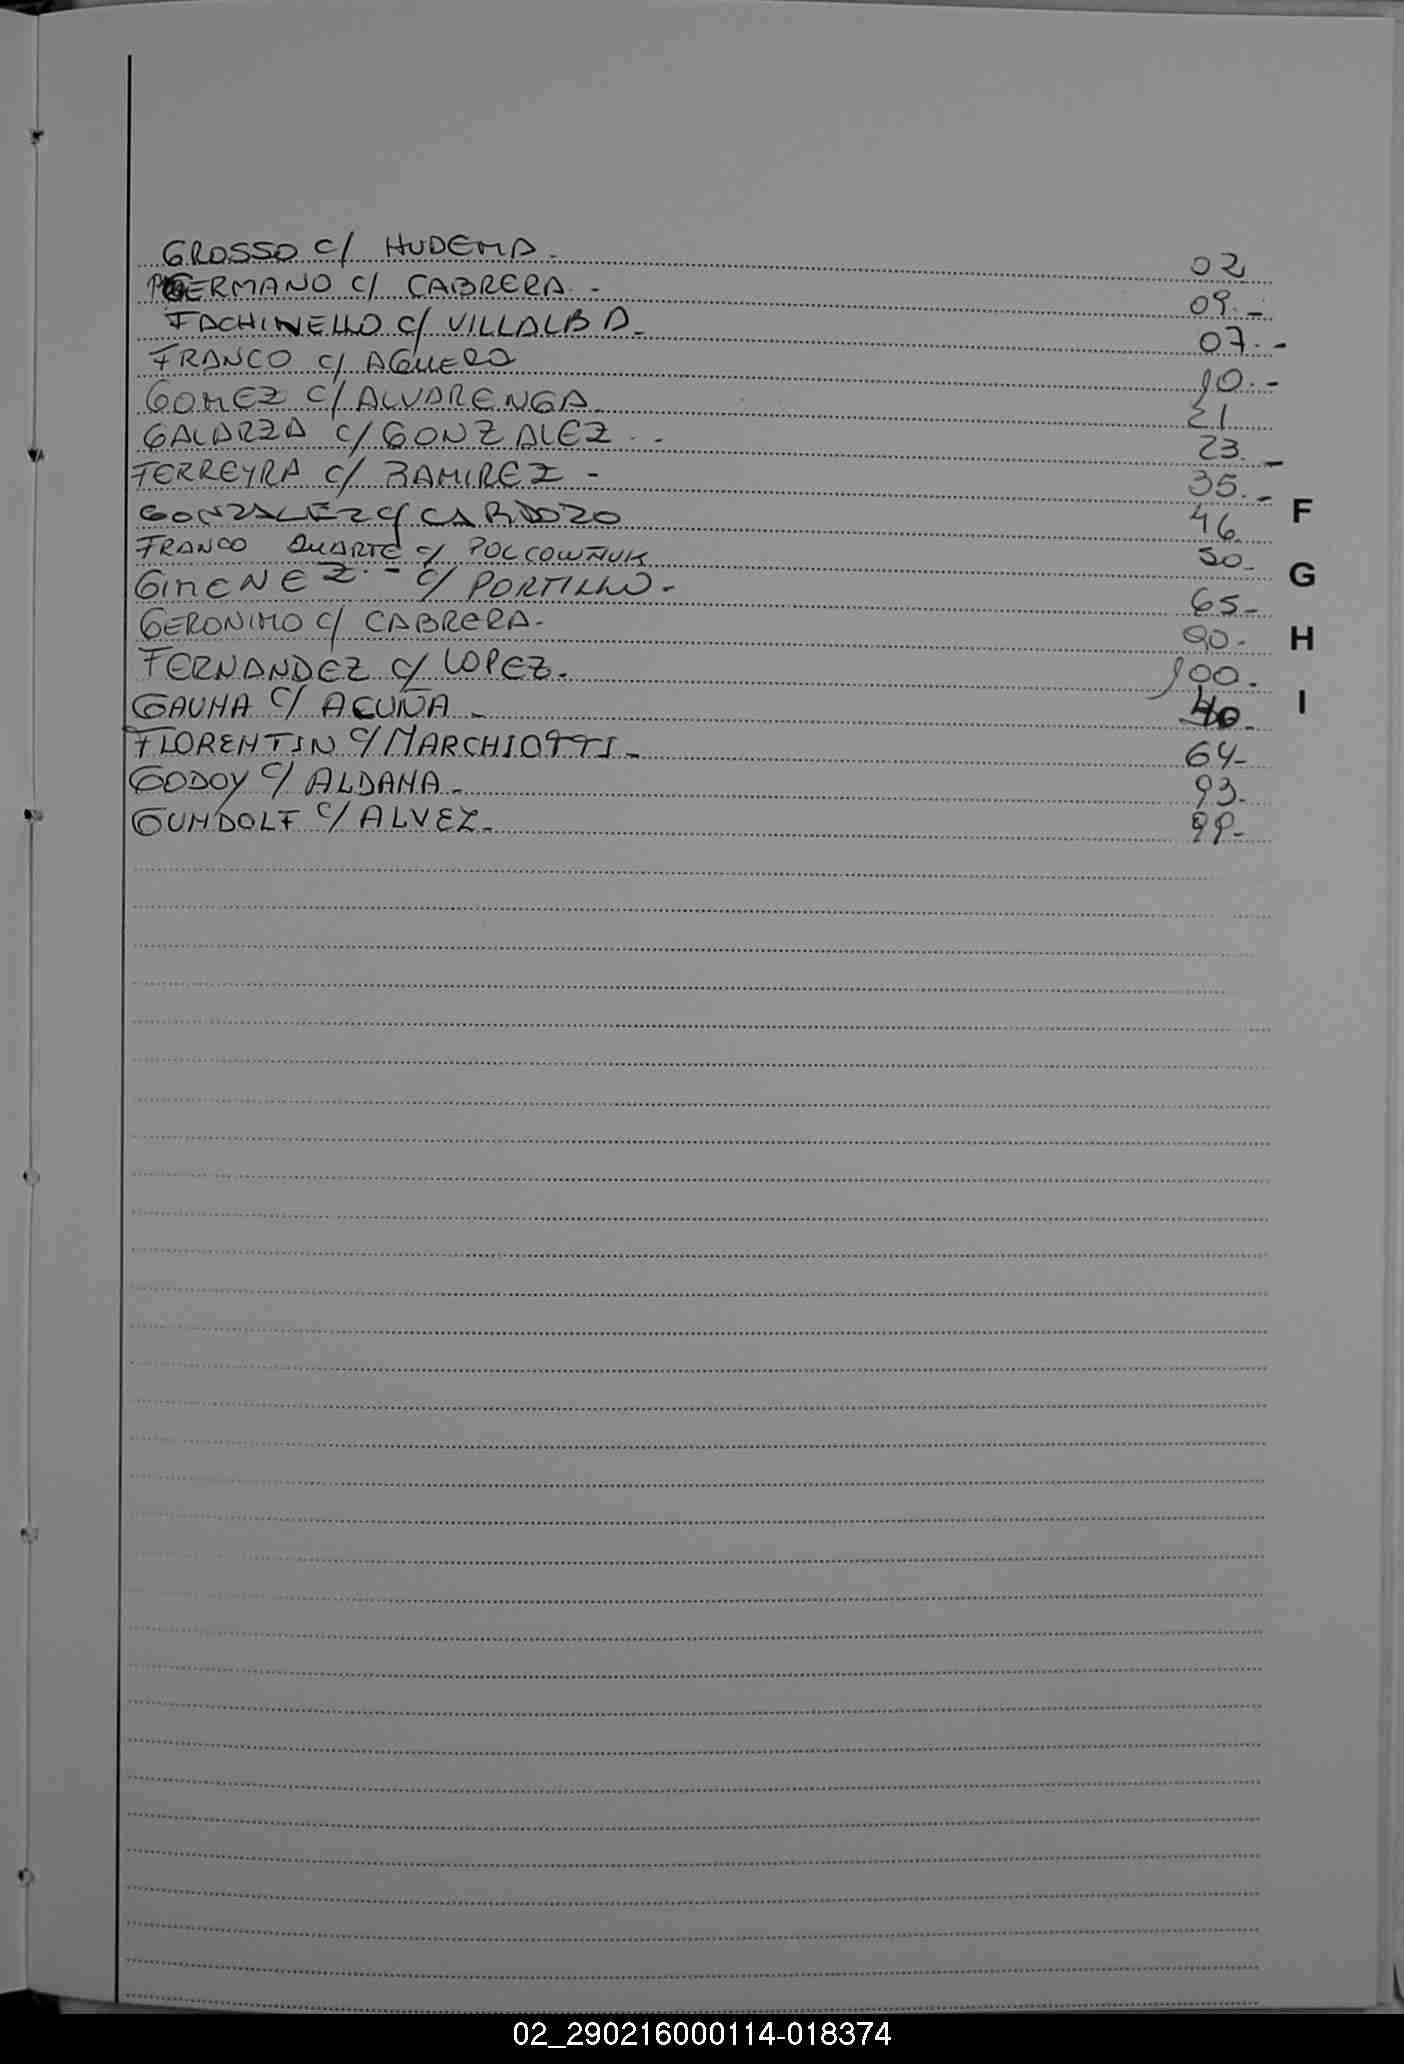 GROSSO c/ HUDEMA - 02
GERMANO c/ CABRERA. - 09.-
FACHINELLO c/ VILLALBA - 07.-
FRANCO c/ AGUERO 10.-
GOMEZ c/ ALVARENGA 21
GALARZA c/ GONZALEZ.- 23.-
FERREYRA c/ RAMIREZ - 35.-
GONZALEZ c/ CARDOZO 46
FRANCO DUARTE c/ 50-
GIMENEZ.- c/ PORTILLO - 65-
GERONIMO c/ CABRERA - 90-
FERNANDEZ c/ LOPEZ. 100.
GAUNA c/ ACUÑA - 40-
FLORENTIN c/ MARCHIOTTI - 64-
GODOY c/ ALDANA - 93-
GUNDOLF c/ ALVEZ - 99-
F
G
H
I
02_290216000114-018374